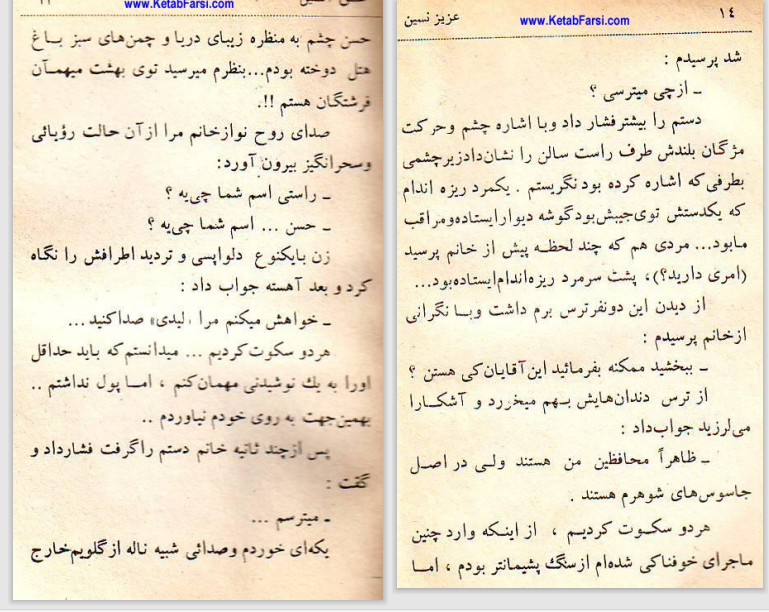 www.KetabFarsi.com
حسن چشم به منظره زیبای دریا و چمن‌های سبز بـاغ
هتل دوخته بودم...بنظرم میرسید توی بهشت میهمـآن
فرشتگان هستم !!.
صدای روح نوازخانم مرا ازآن حالت رؤیائی
وسحرانگیز بیرون آورد:
ـ راستی اسم شما چی‌یه ؟
ـ حسن ... اسم شما چی‌یه ؟
زن بایکنوع دلواپسی و تردید اطرافش را نگاه
کرد و بعد آهسته جواب داد :
ـ خواهش میکنم مرا «لیدی» صداکنید ...
هردو سکوت کردیم ... میدانستم‌که باید حداقل
اورا به یك نوشیدنی مهمان‌کنم ، امـا پول نداشتم ..
بهمین‌جهت به روی خودم نیاوردم ..
پس ازچند ثانیه خانم دستم راگرفت فشارداد و
گفت :
ـ میترسم ...
یکه‌ای خوردم وصدائی شبیه ناله ازگلویم‌خارج
عزیز نسین
www.KetabFarsi.com
۱٤
شد پرسیدم :
ـ ازچی میترسی ؟
دستم را بیشترفشار داد وبا اشاره چشم وحرکت
مژگان بلندش طرف راست سالن را نشان‌دادزیرچشمی
بطرفی‌که اشاره کرده بود نگریستم . یکمرد ریزه اندام
که یکدستش توی‌جیبش‌بودگوشه دیوارایستاده‌ومراقب
مابود... مردی هم که چند لحظـه پیش از خانم پرسید
(امری دارید؟)، پشت سرمرد ریزه‌اندام‌ایستاده‌بود...
از دیدن این دونفرترس برم داشت وبـا نگرانی
ازخانم پرسیدم :
ـ ببخشید ممکنه بفرمائید این‌آقایان‌کی هستن ؟
از ترس دندان‌هایش بـهم میخورد و آشکـارا
می‌لرزید جواب‌داد :
ـ ظاهراً محافظین من هستند ولـی در اصـل
جاسوس‌های شوهرم هستند .
هردو سکـوت کردیـم ، از اینـکه وارد چنین
مـاجرای خوفناکی شده‌ام ازسنگ پشیمانتر بودم ، امـا